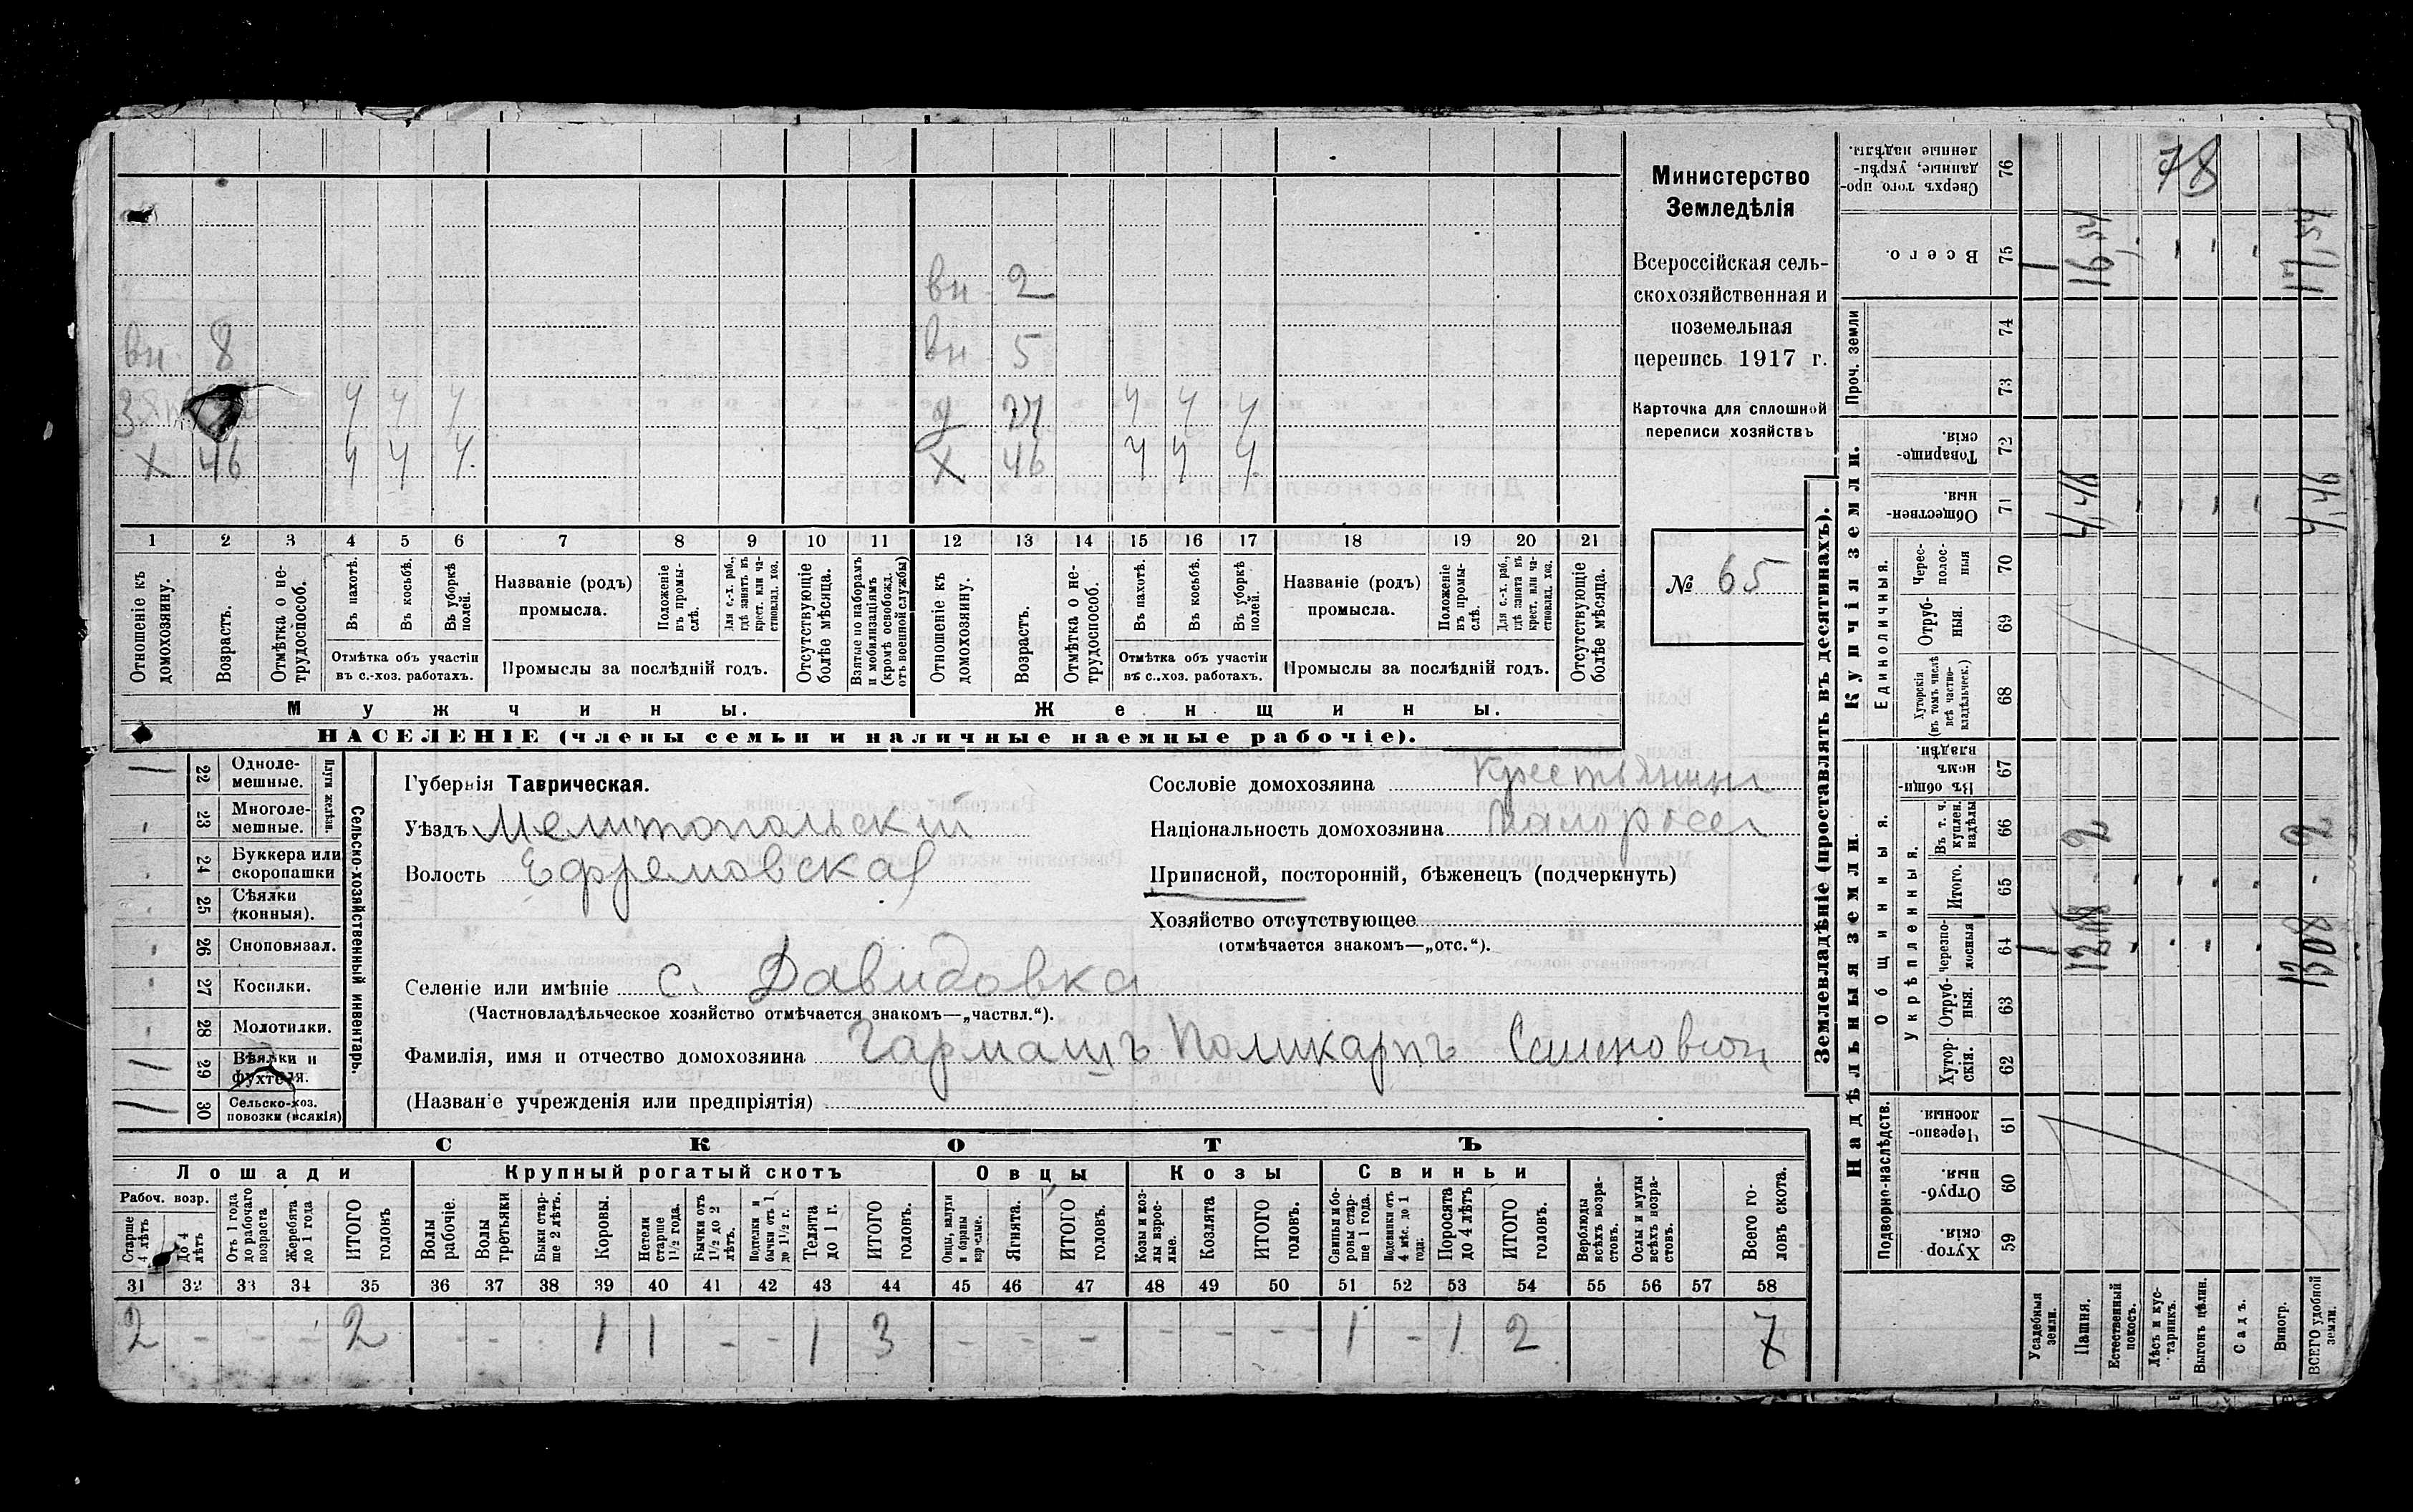 вн 2
вн 8 вн 5
ч ч ч д ч ч ч
х 46 ч ч ч х 46 ч ч ч
1 2 3 4 5 6 7 8 9 10 11 12 13 14 15 16 17 18 19 20 21
Отношеніе къ домохозяину.
Возрастъ.
Отмѣтка о не-трудоспособ.
Въ пахотѣ.
Въ косьбѣ.
Въ уборкѣ полей.
Отмѣтка объ участіи
въ с.-хоз. работахъ.
Названіе (родъ)
промысла.
Положеніе въ промы-слѣ.
Для с.-х. раб., гдѣ занятъ въ крест. или ча-стновлад. хоз.
Промыслы за послѣдній годъ.
Отсутствующіе болѣе мѣсяца.
Взятые по наборамъ и мобилизаціямъ (кромѣ освобожд. отъ военной службы)
Отношеніе къ домохозяину.
Возрастъ.
Отмѣтка о не-трудоспособ.
Въ пахотѣ.
Въ косьбѣ.
Въ уборкѣ полей.
Отмѣтка объ участіи
въ с.-хоз. работахъ.
Названіе (родъ)
промысла.
Положеніе въ промы-слѣ.
Для с.-х. раб., гдѣ занята въ крест. или ча-стновлад. хоз.
Промыслы за послѣдній годъ.
Отсутствующіе болѣе мѣсяца.
Мужчины. Женщины.
НАСЕЛЕНІЕ (члены семьи и наличные наемные рабочіе).
Министерство
Земледѣлія
Всероссійская сель-
скохозяйственная и
поземельная
перепись 1917 г.
Карточка для сплошной
переписи хозяйствъ
№ 65
Сельско-хозяйственный инвентарь.
Плуги желѣзн.
1 22 Однoле-мешные.
23 Многоле-мешные.
24 Буккера или скоропашки
25 Сѣялки (конныя).
26 Сноповязал.
27 Косилки.
28 Молотилки.
1 29 Вѣялки и фухтеля.
1 30 Сельско-хоз. повозки (всякія)
Губернія Таврическая.
Уѣздъ Мелитопольскій
Волость Ефремовская
Сословіе домохозяина Крестьянин
Національность домохозяина Малоросс
Приписной, посторонній, бѣженецъ (подчеркнуть)
Хозяйство отсутствующее
(отмѣчается знакомъ—„отс.“).
Селеніе или имѣніе с. Давидовка
(Частновладѣльческое хозяйство отмѣчается знакомъ—„частвл.“).
Фамилія, имя и отчество домохозяина Гармашъ Поликарпъ Семенович
(Названіе учрежденія или предпріятія)
СКОТЪ
Лошади Крупный рогатый скотъ Овцы Козы Свиньи
Рабоч. возр.
Старше 4 лѣтъ
до 4 лѣтъ
Отъ 1 года до рабочаго возраста
Жеребята до 1 года
ИТОГО головъ
Волы рабочіе.
Волы третьяки
Быки стар-ше 2 лѣтъ.
Коровы.
Нетели старше 1½ года.
Бычки отъ 1½ до 2 лѣтъ.
Подтелки и бычки отъ 1 до 1½ г.
Телята до 1 г.
ИТОГО головъ.
Овцы, валухи и бараны взрослые.
Ягнята.
ИТОГО головъ.
Козы и коз-лы взрос-лые.
Козлята
ИТОГО головъ.
Свиньи и бо-ровы стар-ше 1 года.
Подсвинки отъ 4 мѣс. до 1 года.
Поросята до 4 лѣтъ
ИТОГО головъ.
Верблюды всѣхъ возра-стовъ.
Ослы и мулы всѣхъ возра-стовъ.
Всего го-ловъ скота.
31 32 33 34 35 36 37 38 39 40 41 42 43 44 45 46 47 48 49 50 51 52 53 54 55 56 57 58
2 - - - 2 - - 1 1 - - 1 3 - - - - - - 1 - 1 2 7
Землевладѣніе (проставлять въ десятинахъ).
Надѣльныя земли. Купчія земли. Проч. земли
Подворно-наслѣдств.
Общинныя.
Укрѣпленныя.
Единоличныя.
Хутор-скія. 59
Отруб-ныя. 60
Черезпо-лосныя 61
Хутор-скія. 62
Отруб-ныя. 63
Черезпо-лосныя 64
Итого. 65
Въ т. ч. куплен. надѣлы 66
Въ общи-номъ владѣн. 67
Хуторскія (въ томъ числѣ всѣ частно-владѣльческ.) 68
Отруб-ныя. 69
Черес-полос-ныя 70
Обществен-ныя. 71
Товарище-скія. 72
73
74
Всего. 75
Сверхъ того про-данные, укрѣп-ленные надѣлы. 76
78
Усадебныя земли.
Пашня.
Естественный покосъ.
Лѣсъ и кус-тарникъ.
Выгонъ цѣлин.
Садъ.
Виногр.
ВСЕГО удобной земли.
1 1
2 16,54
2 13,08